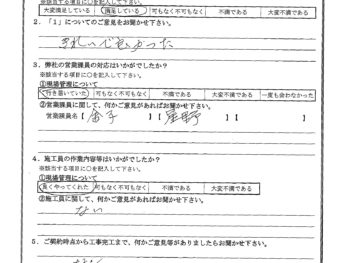 ※該当する項目に○を記入して下さい。
大変満足している 満足している 可もなく不可もなく 不満である 大変不満である
2．「1」についてのご意見をお聞かせ下さい。
3．弊社の営業課員の対応はいかがでしたか？
※該当する項目に○を記入して下さい。
①現場管理について
行き届いていた 可もなく不可もなく 不満である 大変不満である 一度も会わなかった
②営業課員に関して、何かご意見があればお聞かせ下さい。
営業課員名【金子 】【星野 】【 】
4．施工員の作業内容等はいかがでしたか？
※該当する項目に○を記入して下さい。
①現場管理について
良くやってくれた 可もなく不可もなく 不満である 大変不満である
②施工員に関して、何かご意見があればお聞かせ下さい。
ない
5．ご契約時点から工事完工まで、何かご意見等がありましたらお聞かせ下さい。